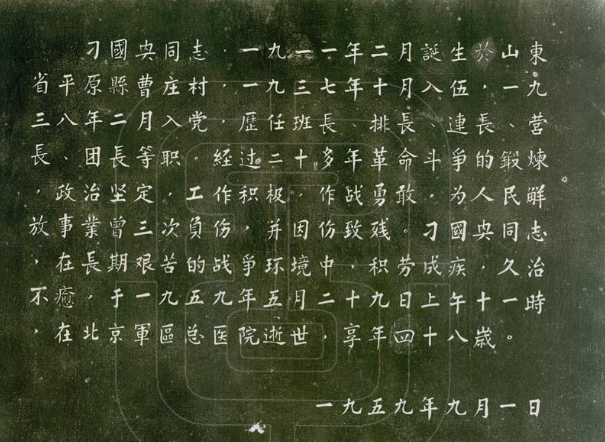 刁國央同志，一九一一年二月誕生於山東
省平原縣曹庄村，一九三七年十月入伍，一九
三八年二月入党，歴任班長、排長、連長、营
長、团長等职，经过二十多年革命斗爭的鍛煉
，政治坚定，工作积极，作战勇敢，为人民解
放事業曾三次負伤，并因伤致残。刁國央同志
，在長期艰苦的战爭环境中，积劳成疾，久治
不癒，于一九五九年五月二十九日上午十一時
，在北京軍區总医院逝世，享年四十八歳。
一九五九年九月一日